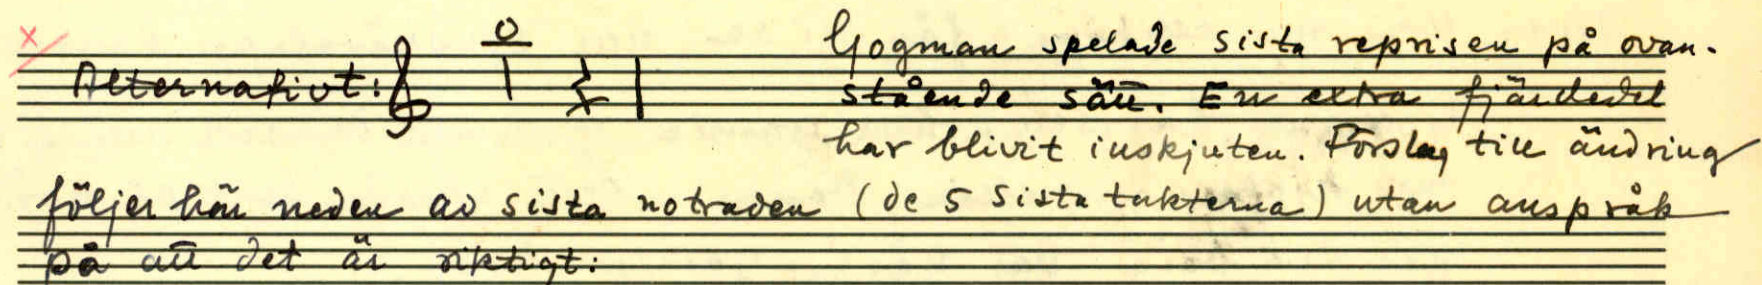 Alternativt:
Gogman spelade sista reprisen på ovan-
stående sätt. En extra fjärdedel
har blivit inskjuten. Förslag till ändring
följer här neden av sista notraden (de 5 sista takterna) utan anspråk
på att det är riktigt: